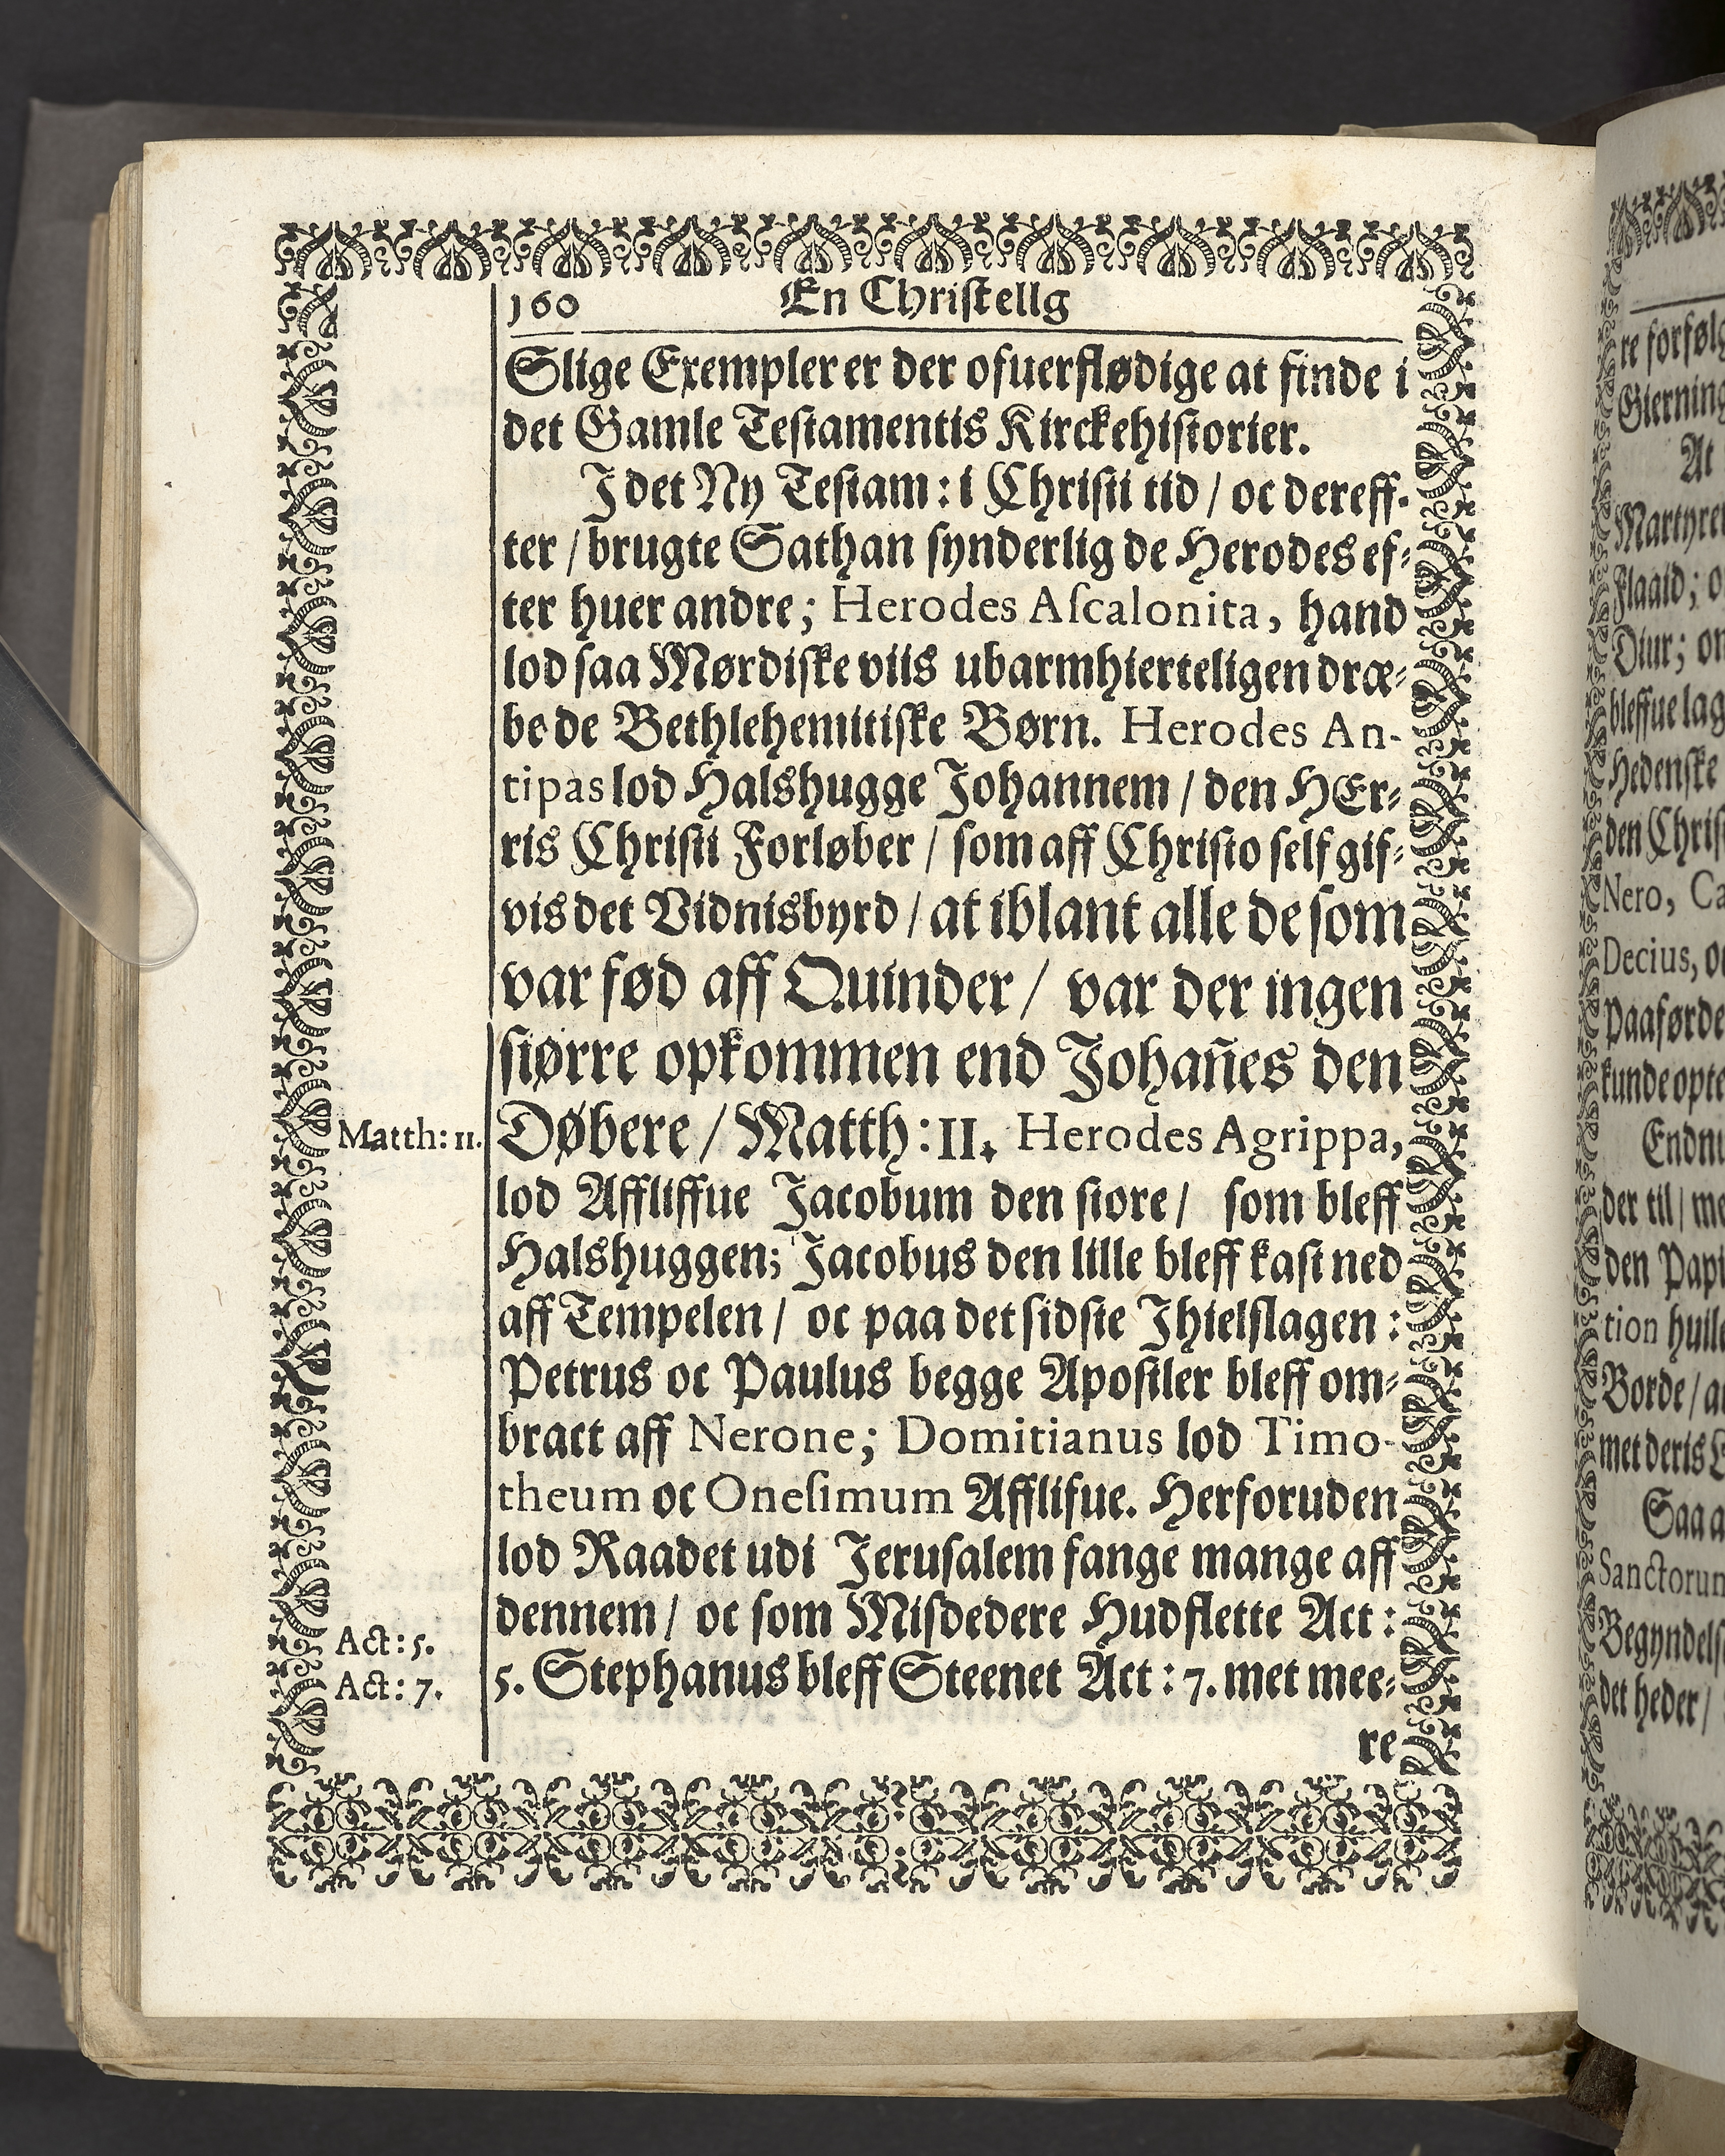 160 En Christellg
Slige Exempler er der ofuerflødige at finde i
det Gamle Testamentis Kirckehistorier.
I det Ny Testam: i Christi tid / oc dereff-
ter / brugte Sathan synderlig de Herodes ef-
ter huer andre; Herodes Aſcalonita, hand
lod saa Mørdiske viis ubarmhierteligen dræ-
be de Bethlehemitiske Børn. Herodes An-
tipas lod Halshugge Johannem / den HEr-
ris Christi Forløber / som aff Christo self gif-
vis det Vidnisbyrd / at iblant alle de som
var fød aff Quinder / var der ingen
større opkommen end Johañes den
Døbere / Matth: II. Herodes Agrippa,
Matth: 11.
lod Affliffue Jacobum den store / som bleff
Halshuggen; Jacobus den lille bleff kast ned
aff Tempelen / oc paa det sidste Ihielslagen:
Petrus oc Paulus begge Apostler bleff om-
bract aff Nerone; Domitianus lod Timo-
theum oc Oneſimum Afflifue. Herforuden
lod Raadet udi Jerusalem fange mange aff
dennem / oc som Misdedere Hudflette Act:
Act: 5.
5. Stephanus bleff Steenet Act: 7. met mee-
Act: 7.
re
re forfølg
Gierning
At
Martyre
Flaaid; o
Diur; om
bleffue lag
Hedenske
den Chris
Nero, Ca
Decius, o
paaførde
kunde opte
Endnu
der til / me
den Papi
tion huile
Borde / a
met deris
Saa a
Sanctorum
Begyndels
det heder /